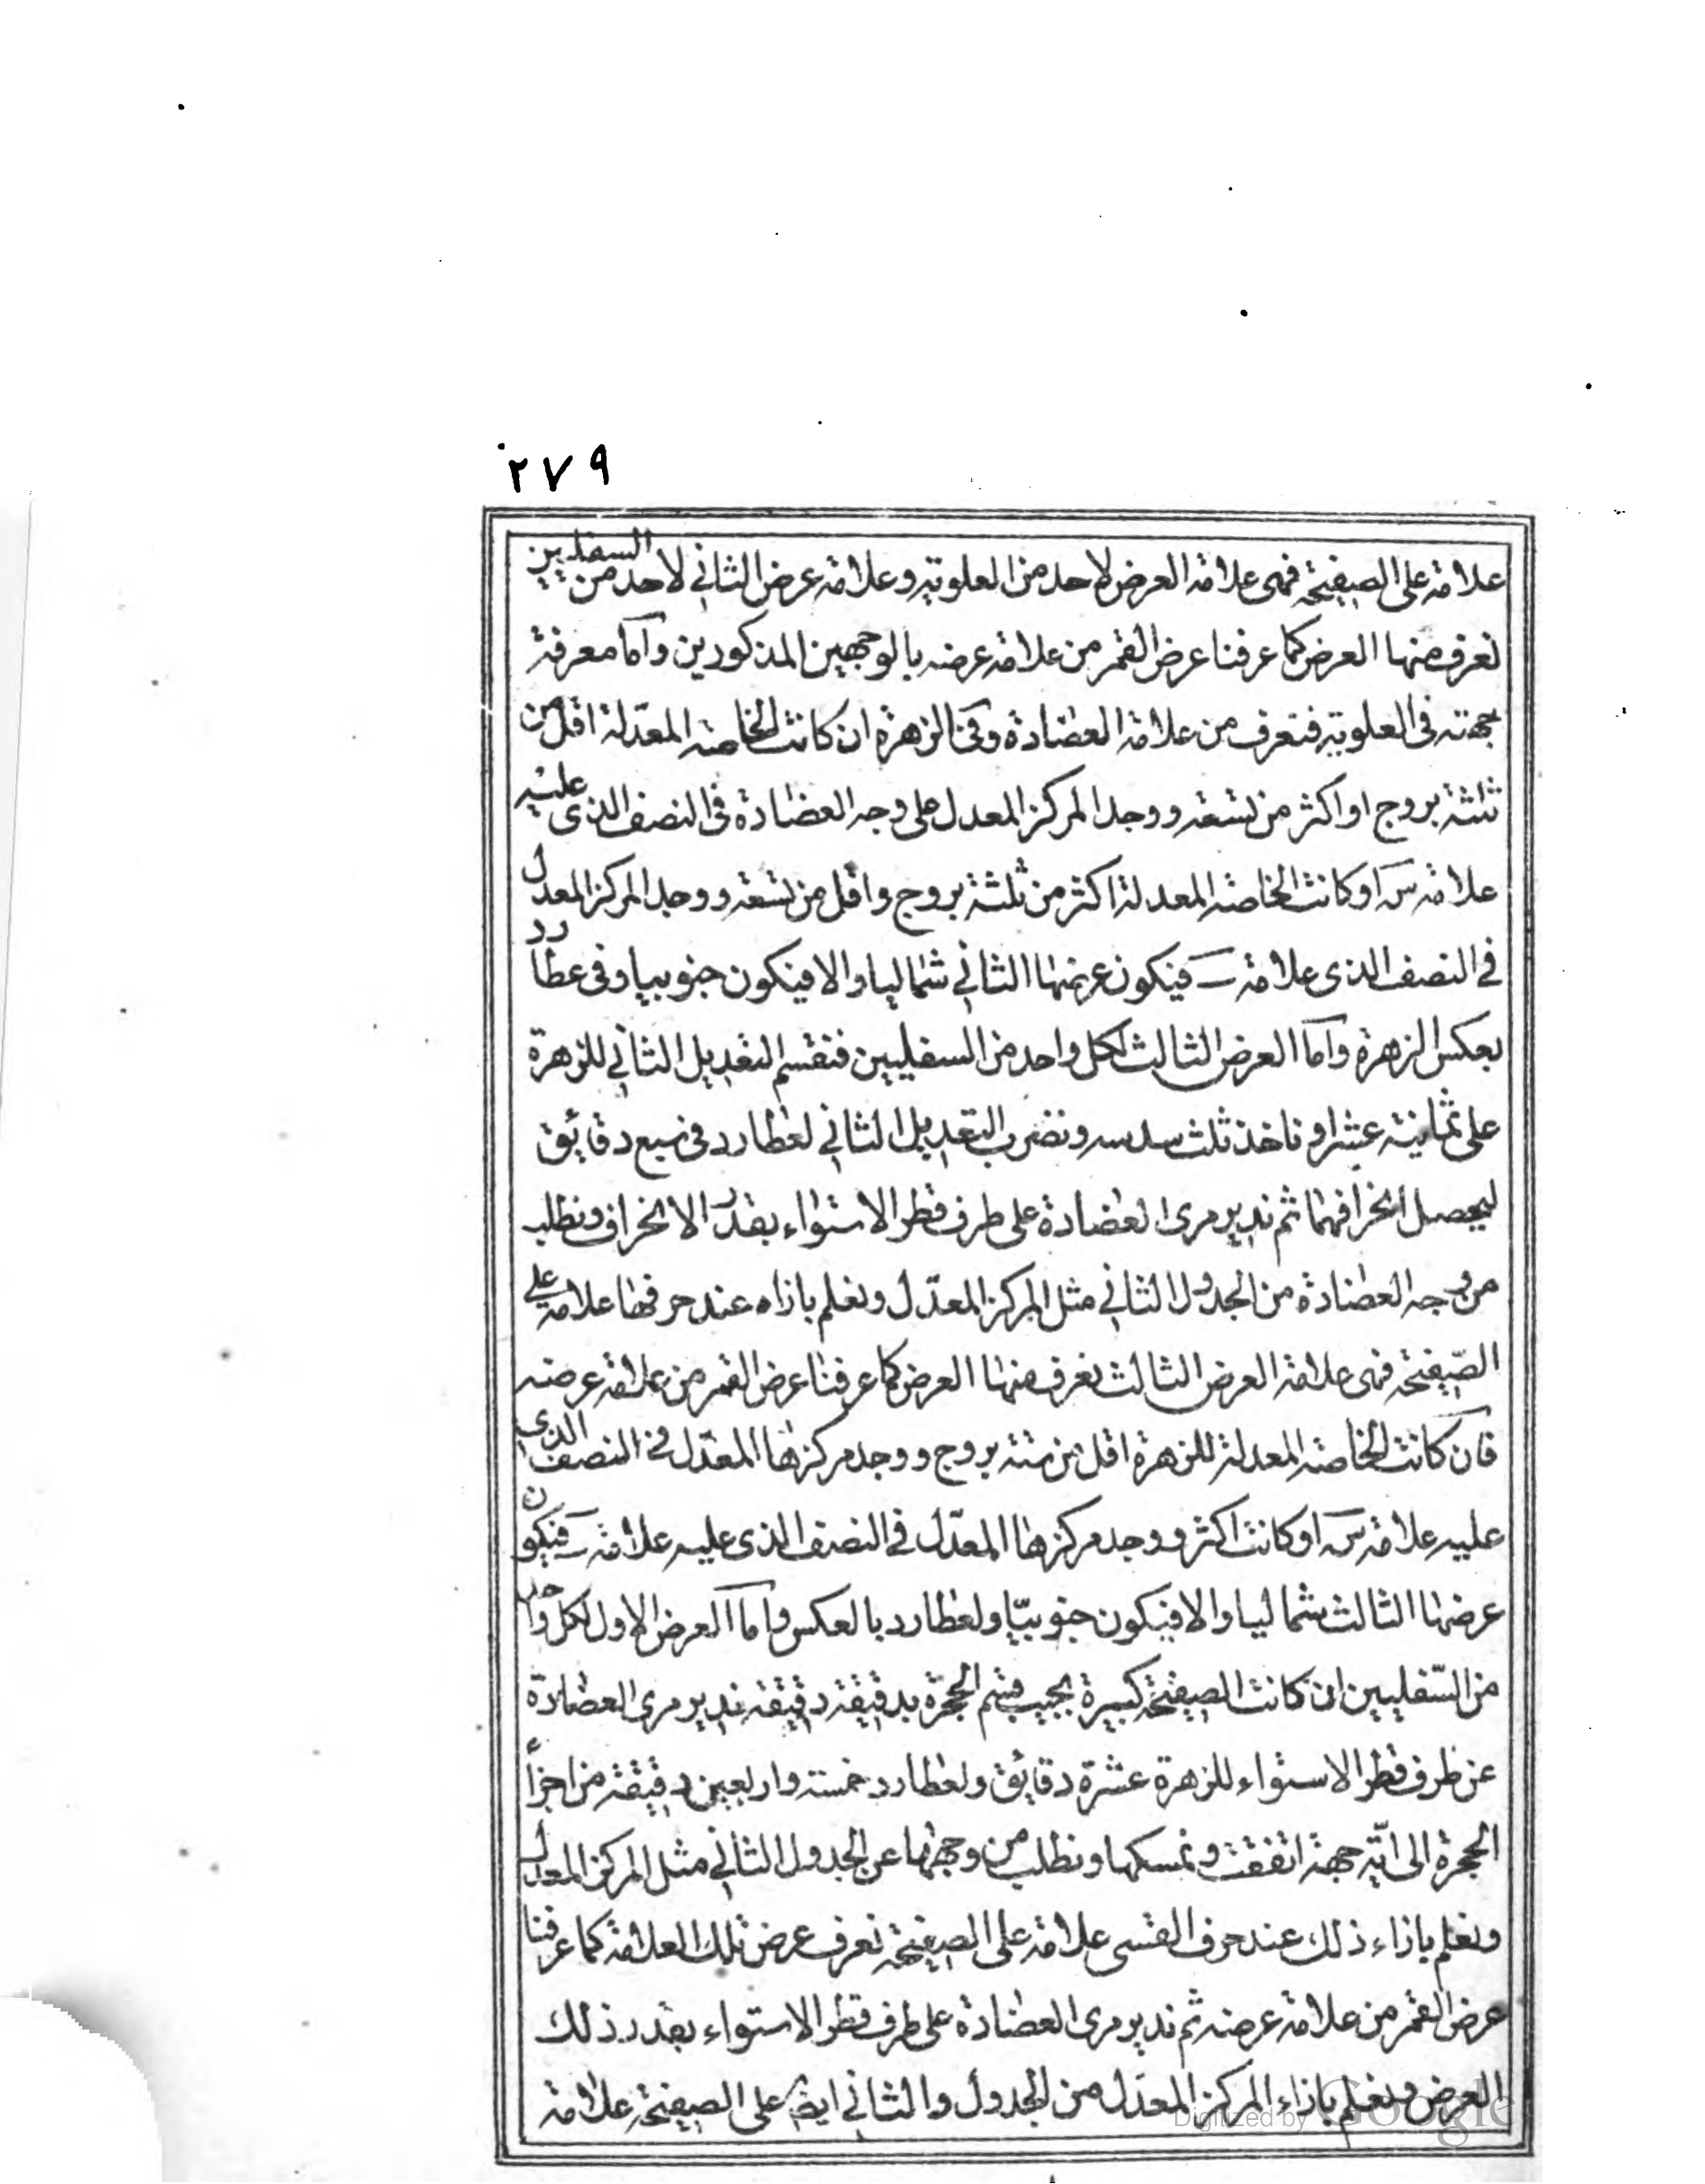 ٢٧٩
علامة على الصفيحة فهى علامة العرض لاحد من العلوية وعلامة عرض الثانى لاحد من السفليين
نعرف منها العرض كما عرفنا عرض القمر من علامة عرضه بالوجهين المذكورين واما معرفة
جهته فى العلوية فتعرف من علامة العضادة وفى الزهرة ان كانت الخاصة المعدلة اقل من
ثلثة بروج او اكثر من تسعة ووجد المركز المعدل على وجه العضادة فى النصف الذى عليه
علامة او كانت الخاصة المعدلة اكثر من ثلثة بروج واقل من تسعة ووجد المركز المعدل
فى النصف الذى علامة فيكون عرضها الثانى شماليا والا فيكون جنوبيا وفى عطارد
بعكس الزهرة واما العرض الثالث لكل واحد من السفليين فنقسم التعديل الثانى للزهرة
على ثمانية عشر او ناخذ ثلث سدسه ونضرب التعديل الثانى لعطارد فى سبع دقايق
ليحصل انحرافهما ثم ندير مرى العضادة على طرف قطر الاستواء بقدر الانحراف ونطلب
من وجه العضادة من الجدول الثانى مثل المركز المعدل ونعلم بازاه عند حرفها علامة على
الصفيحة فهى علامة العرض الثالث نعرف منها العرض كما عرفنا عرض القمر من علامة عرضه
فان كانت الخاصة المعدلة للزهرة اقل من ستة بروج ووجد مركزها المعدل فى النصف الذى
عليه علامة او كانت اكثر ووجد مركزها المعدل فى النصف الذى عليه علامة فيكون
عرضها الثالث شماليا والا فيكون جنوبيا ولعطارد بالعكس واما العرض الاول لكل واحد
من السفليين ان كانت الصفيحة كبيرة بحيث قسم الحجرة بدقيقة دقيقة ندير مرى العضادة
عن طرف قطر الاستواء للزهرة عشرة دقايق ولعطارد خمسة واربعين دقيقة من اجزا
الحجرة الى اية جهة اتفقت ونمسكها ونطلب من وجهها عن الجدول الثانى مثل المركز المعدل
ونعلم بازاء ذلك عند حرف القسى علامة على الصفيحة نعرف عرض تلك العلامة كما عرفنا
عرض القمر من علامة عرضه ثم ندير مرى العضادة على طرف قطر الاستواء بقدر ذلك
العرض ونعلم بازاء المركز المعدل من الجدول والثانى ايضا على الصفيحة علامة
Digitized by Google